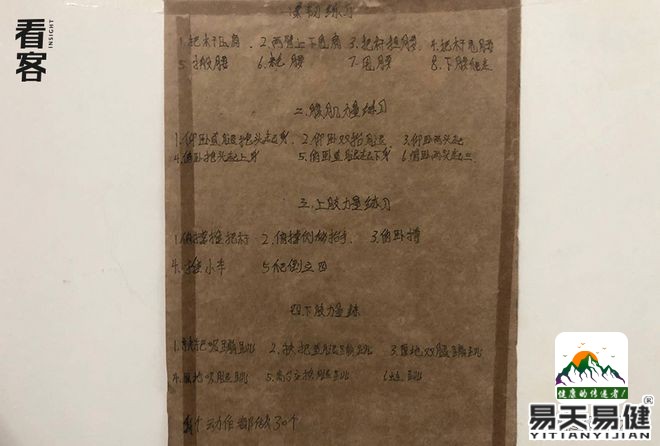 看客
INSIGHT
一柔韧练习
1.把杆压肩 2.两臂上下甩肩 3.把杆 腰 4.把杆甩腰
5. 腰 6. 腰 7.甩腰 8.下腰
二.腹肌力量练习
1.仰卧直腿抱头起身 2.仰卧双抬腿 3.仰卧两头起
4.俯卧抱头起上身 5.俯卧直腿起下身 6.俯卧两头起
三.上肢力量练习
1.俯撑推把杆 2.俯撑 3.俯卧撑
4.推小车 5.倒立
四下肢力量练
1.扶把吸腿跳 2.扶把直腿跳 3.原地双腿跳
4.原地吸腿跳 5. 换腿跳 6.蛙跳
每个动作都做30个
健康的传递者!
易天易健
YITIANYIJIAN